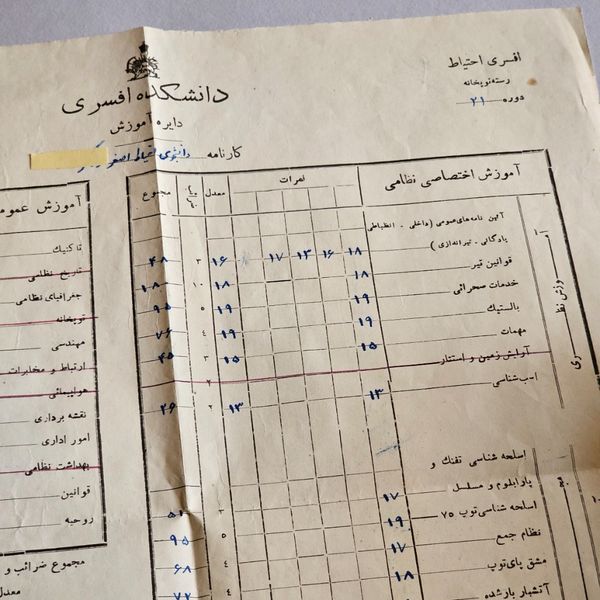 افسری احتیاط
رسته توپخانه
دوره ۲۱
دانشکده افسری
دایره آموزش
کارنامه دانشجوی احتیاط اصغر
آموزش اختصاصی نظامی
نمرات
معدل
مجموع
آئین نامه‌های عمومی (داخلی ـ انظباطی
پادگانی ـ تیراندازی) ۱۸ ۱۶ ۱۳ ۱۷ ۱۶ ۳ ۴۸
قوانین تیر ۱۸ ۱۸ ۱۰ ۱۸۰
خدمات صحرائی ۱۹ ۱۹ ۵ ۹۵
بالستیک ۱۹ ۱۹ ۴ ۷۶
مهمات ۱۵ ۱۵ ۳ ۴۵
آرایش زمین و استتار ۲
اسب‌شناسی ۱۳ ۱۳ ۲ ۲۶
اسلحه شناسی تفنگ و
پارابلوم و مسلسل ۱۷ ۳ ۵۱
اسلحه شناسی توپ ۷۵ ۱۹ ۵ ۹۵
نظام جمع ۱۷ ۴ ۶۸
مشق پای‌توپ ۱۸ ۴ ۷۲
آتشبار بارشده
آموزش عمو
تاکتیک
تاریخ نظامی
جغرافیای نظامی
توپخانه
مهندسی
ارتباط و مخابرات
هواپیمائی
نقشه برداری
امور اداری
بهداشت نظامی
قوانین
روحیه
مجموع ضرائب و
معدل